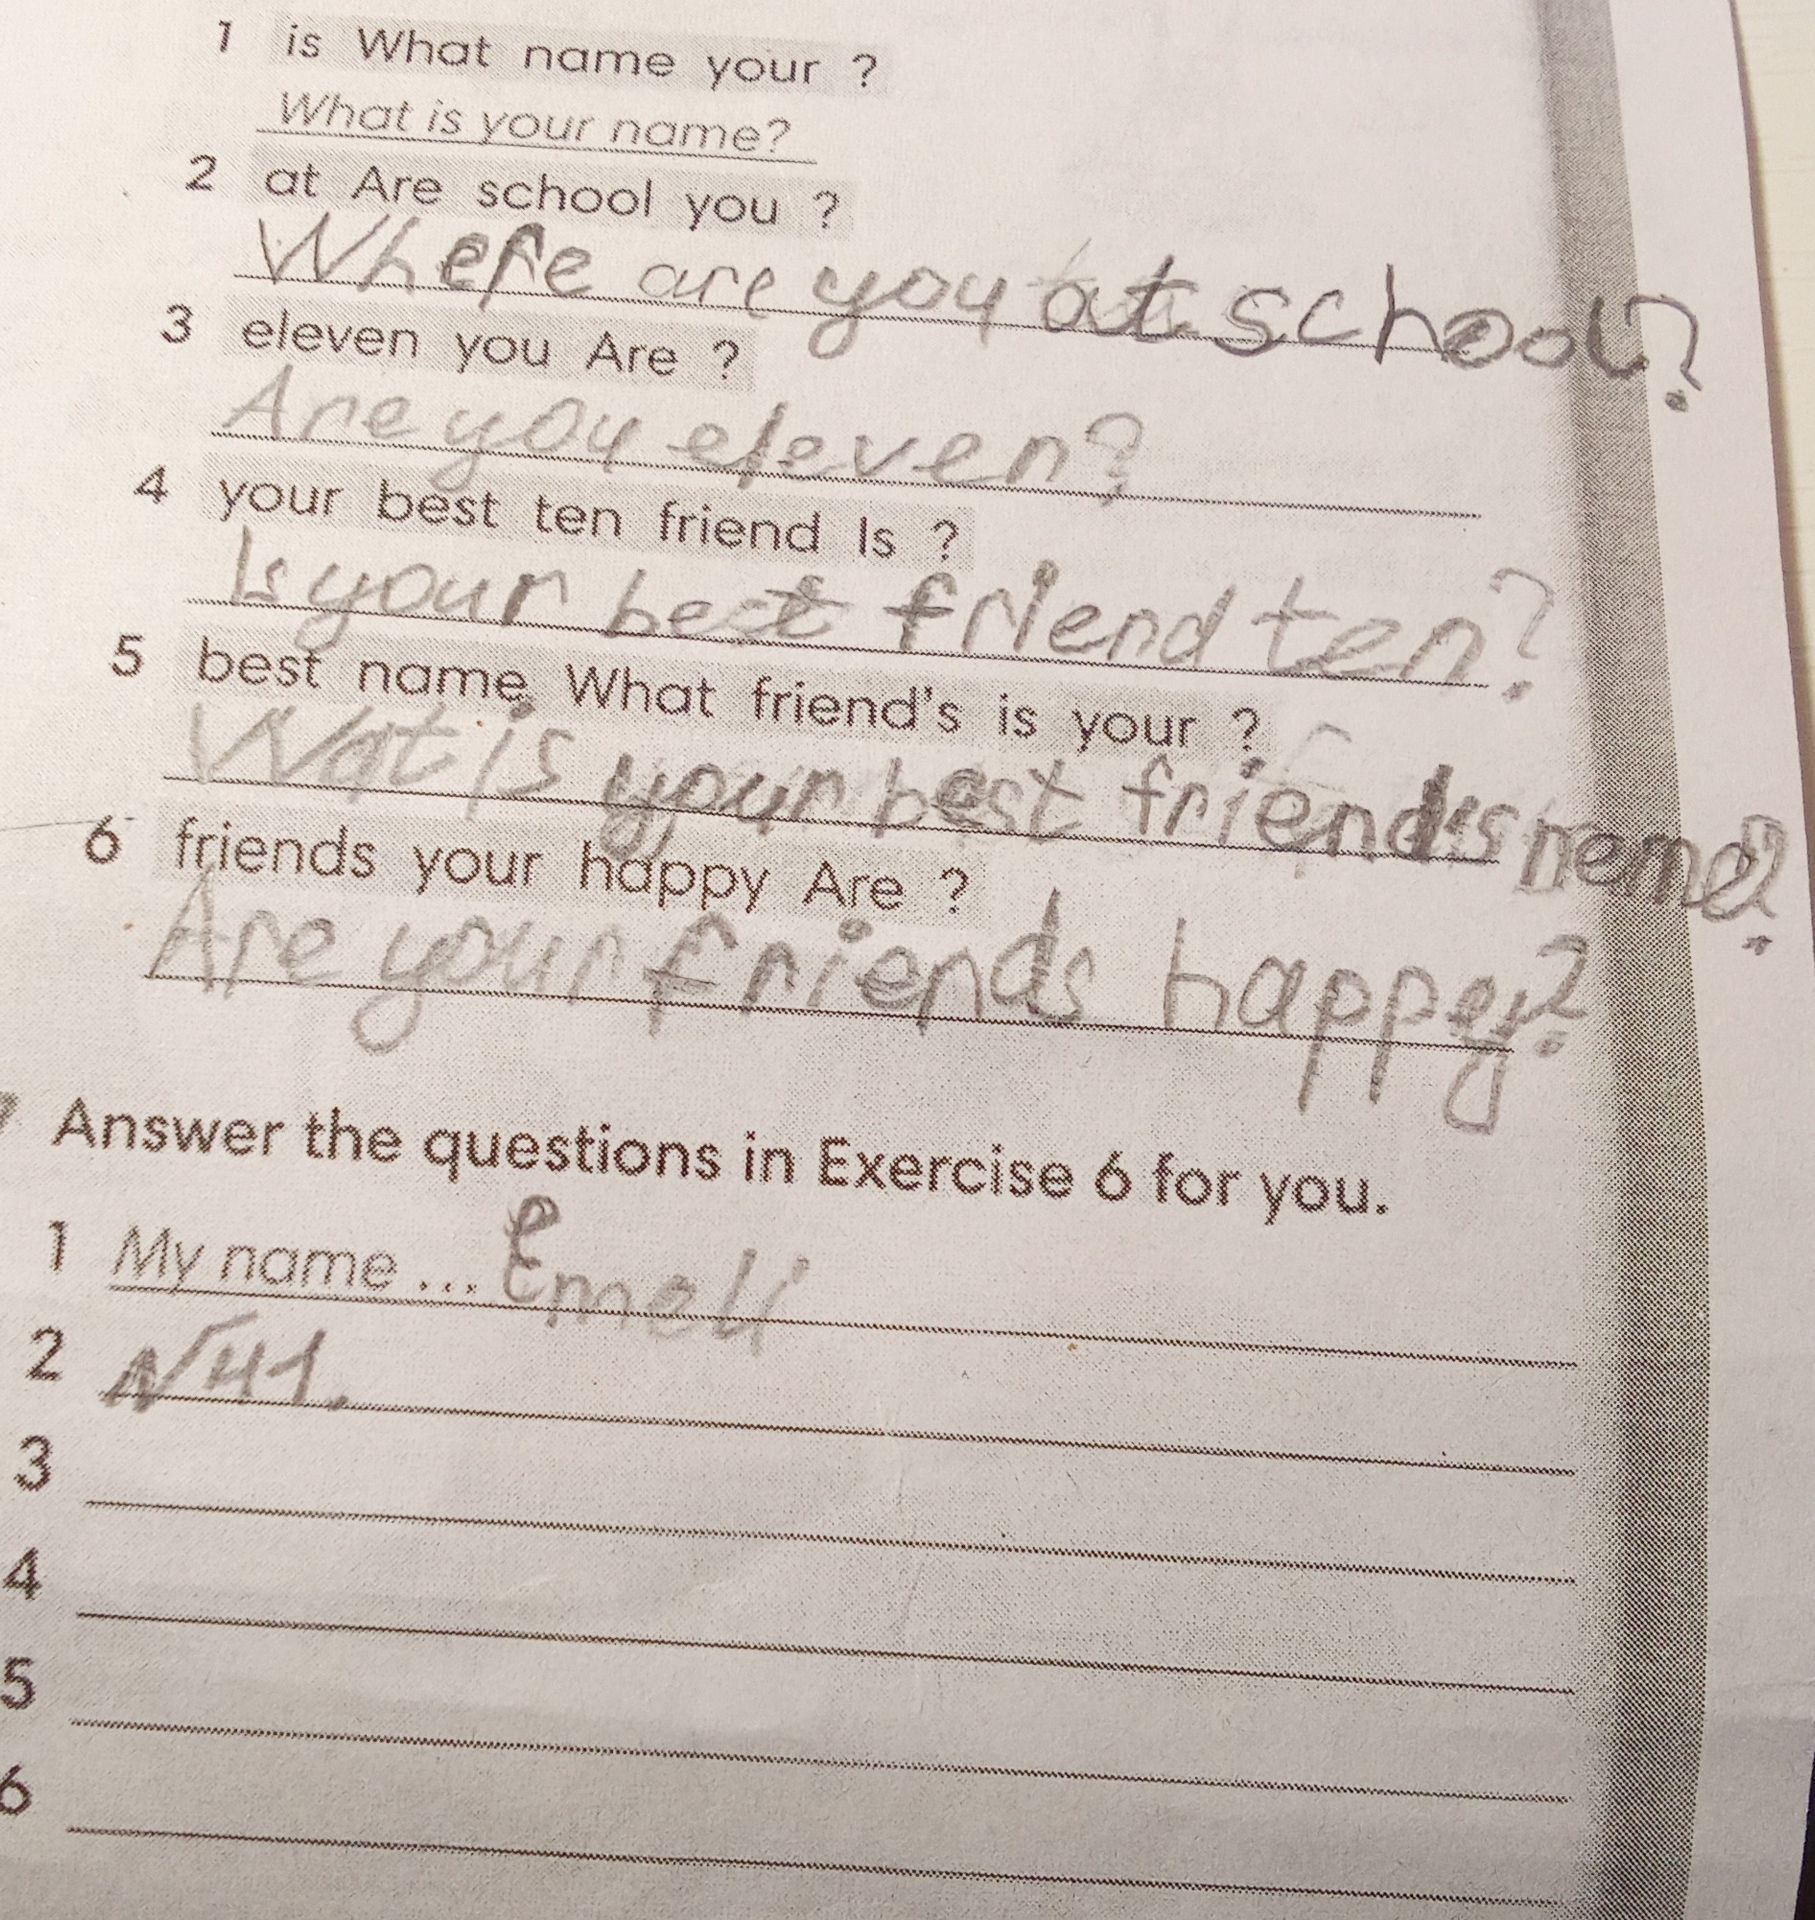 1 is What name your ?
What is your name?
2 at Are school you ?
Where are you at school?
3 eleven you Are ?
Are you eleven?
4 your best ten friend Is ?
Is your best friend ten?
5 best name What friend's is your ?
Wat is your best friend's neme?
6 friends your happy Are ?
Are your friends happy?
Answer the questions in Exercise 6 for you.
1 My name ... Emeli
2
3
4
5
6